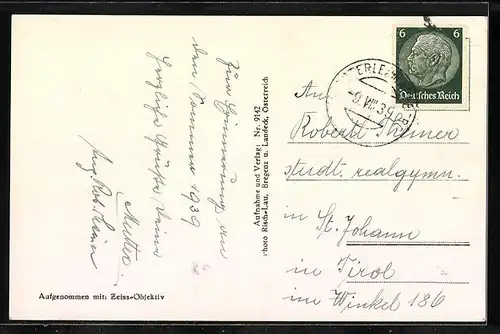 Zur Erinnerung an
den Sommer 1939
herzliche Grüße, Deine
Mutter
Aufgenommen mit: Zeiss-Objektiv
Aufnahme und Verlag: Nr. 9142
Photo Risch-Lau, Bregenz u. Landeck, Österreich
6 6
Deutsches Reich
-9.VIII.39
An
Robert
städt. realgymn.
in St. Johann
in Tirol
im Winkel 186